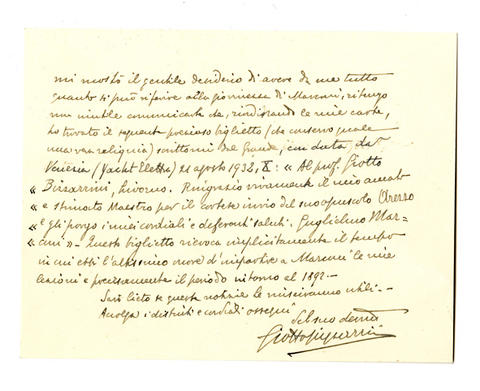 mi mostrò il gentile desiderio di avere da me tutto
quanto si può riferire alla giovinezza di Marconi, ritengo
non inutile comunicarle che, riordinando le mie carte,
ho trovato il seguente prezioso biglietto (che conservo quale
una vera reliquia) scrittomi dal Grande, in data, da
Venezia (Yacht Elettra) 21 agosto 1932, X: « Al prof. Giotto
« Bizzarrini, Livorno. Ringrazio vivamente il mio amato
« e stimato Maestro per il cortese invio del suo opuscolo Arezzo
« e gli porgo i miei cordiali e deferenti saluti. Guglielmo Mar=
« coni » - Questo biglietto rievoca implicitamente il tempo
in cui ebbi l'altissimo onore d'impartire a Marconi le mie
lezioni e precisamente il periodo intorno al 1892. -
Sarò lieto se queste notizie le riusciranno utili. -
Accolga i distinti e cordiali ossequi
del suo devmo
Giotto Bizzarrini